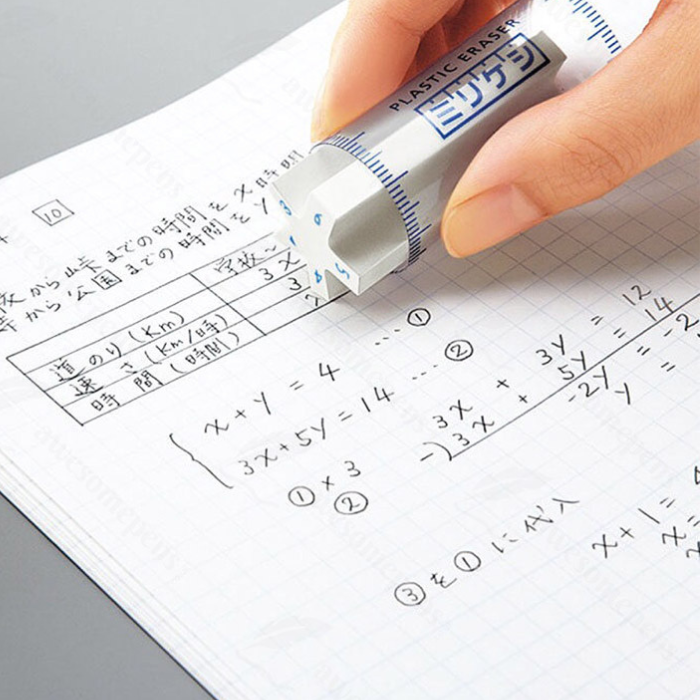 PLASTIC ERASER
ミリケシ
10
から峠までの時間を x 時間
から公園までの時間を y
学校〜
道のり(Km)
3x
速さ(Km/時)
3
時間(時間)
x + y = 4 … ①
3x + 5y = 14 … ②
① × 3
②
3x + 3y = 12
-) 3x + 5y = 14
-2y = -2
y =
③を①に代入
x + 1 = 4
x =
3
6
4
5
awesomepens